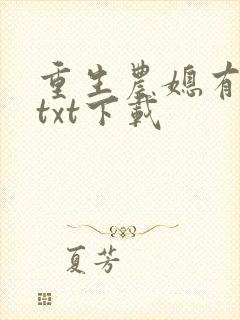 重生農媳有
txt下載
夏芳